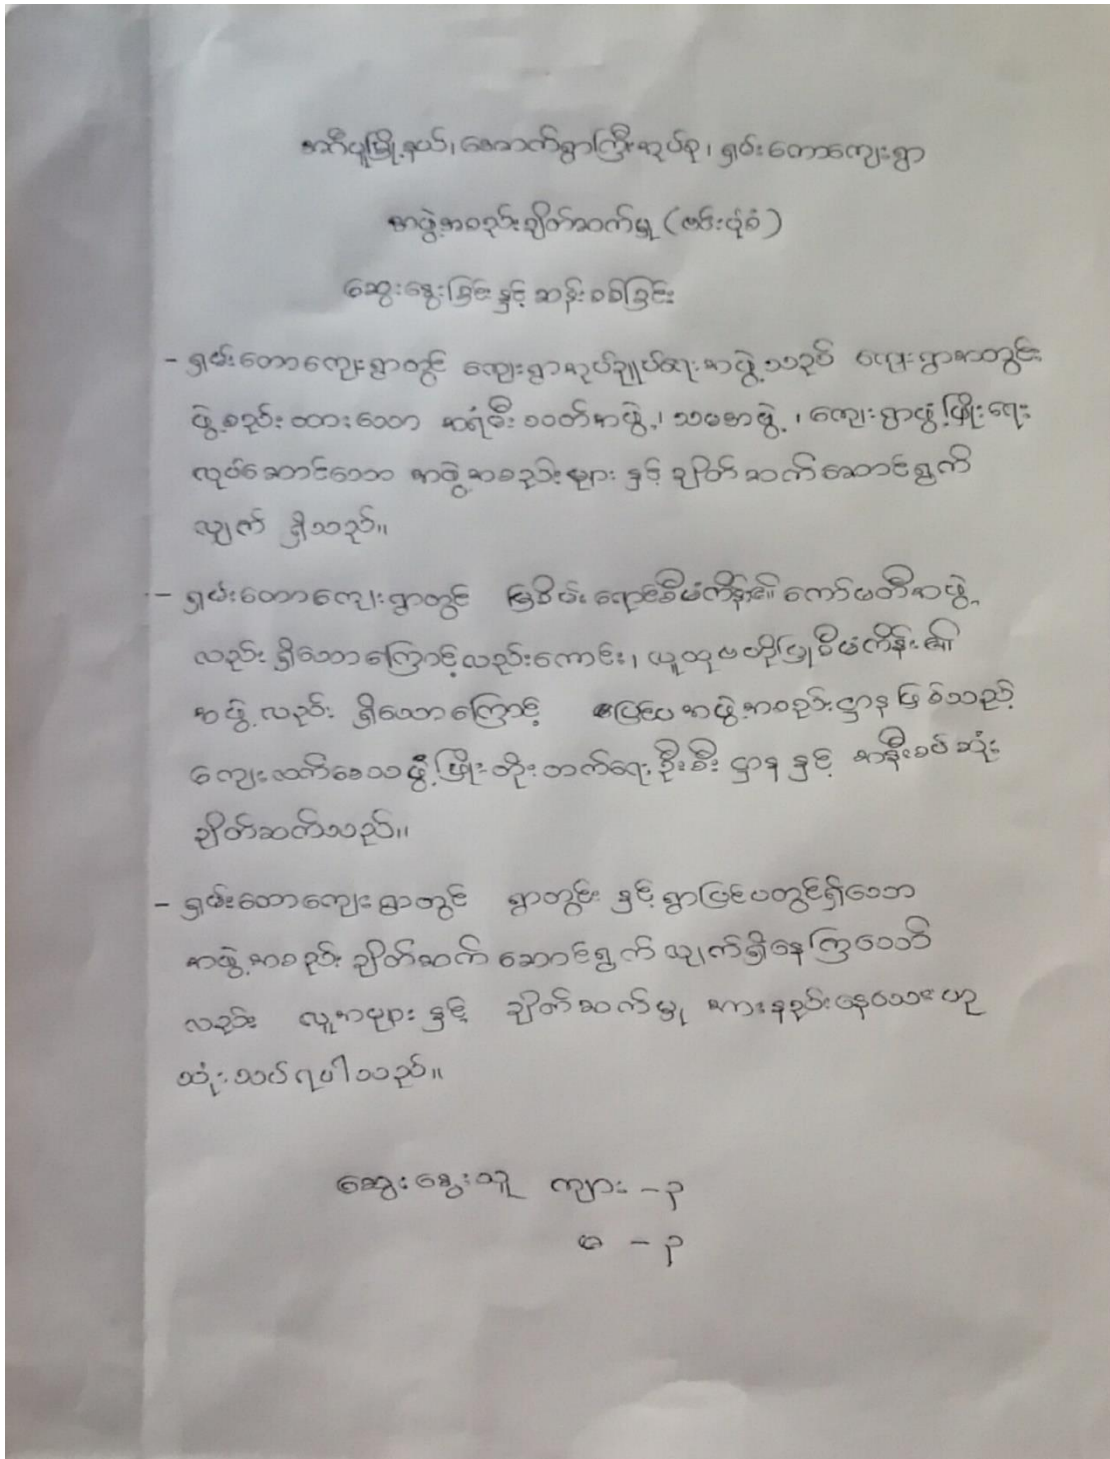 အင်္ဂပူမြို့နယ်၊ အောက်ရွာကြီးအုပ်စု၊ ရှမ်းတောကျေးရွာ
အဖွဲ့အစည်းချိတ်ဆက်မှု (ဗင်းပုံစံ)
ဆွေးနွေးခြင်း နှင့် ဆန်းစစ်ခြင်း
- ရှမ်းတောကျေးရွာတွင် ကျေးရွာအုပ်ချုပ်ရေးအဖွဲ့သည် ကျေးရွာအတွင်း
ဖွဲ့စည်းထားသော အရံမီးသတ်အဖွဲ့၊ သမအဖွဲ့၊ ကျေးရွာဖွံ့ဖြိုးရေး
လုပ်ဆောင်သော အဖွဲ့အစည်းများ နှင့် ချိတ်ဆက်ဆောင်ရွက်
လျှက် ရှိသည်။
- ရှမ်းတောကျေးရွာတွင် မြစိမ်းရောင်စီမံကိန်း၏ ကော်မတီအဖွဲ့
လည်း ရှိသောကြောင့်လည်းကောင်း၊ လူထုဗဟိုပြုစီမံကိန်း၏
အဖွဲ့လည်း ရှိသောကြောင့် ပြင်ပအဖွဲ့အစည်းဌာနဖြစ်သည့်
ကျေးလက်ဒေသဖွံ့ဖြိုးတိုးတက်ရေးဦးစီးဌာန နှင့် အနီးစပ်ဆုံး
ချိတ်ဆက်သည်။
- ရှမ်းတောကျေးရွာတွင် ရွာတွင်း နှင့် ရွာပြင်ပတွင်ရှိသော
အဖွဲ့အစည်း ချိတ်ဆက် ဆောင်ရွက်လျှက်ရှိနေကြသော်
လည်း လူအများ နှင့် ချိတ်ဆက်မှု အားနည်းနေသေးဟု
သုံးသပ်ရပါသည်။
ဆွေးနွေးသူ ကျား - ၃
မ - ၃